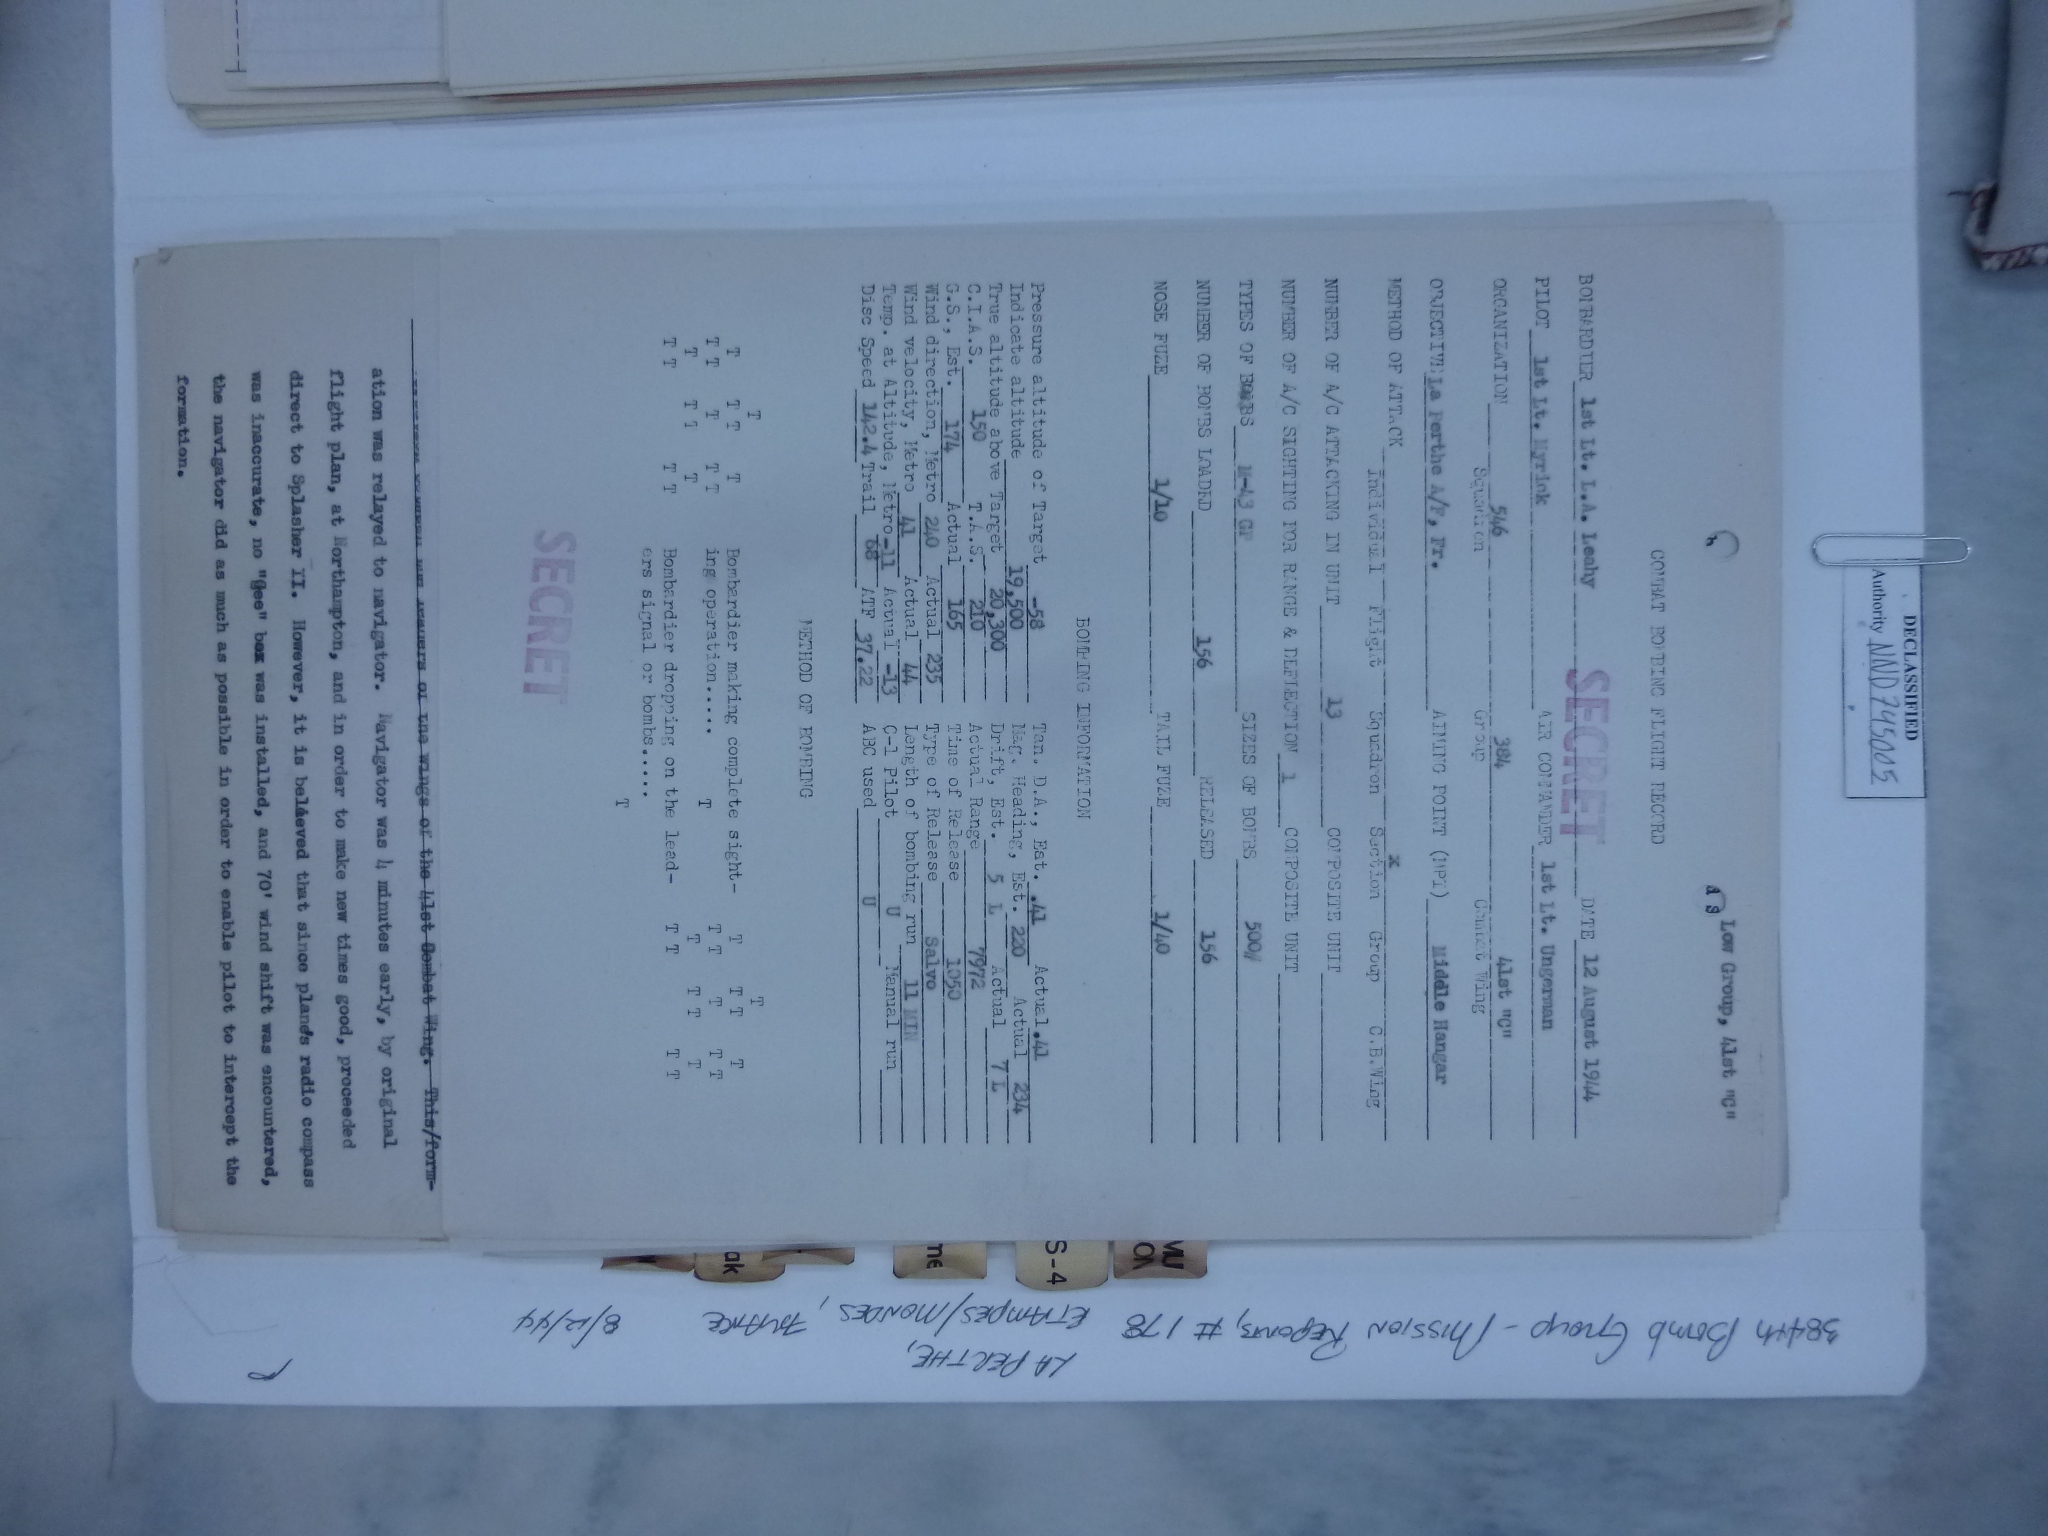 DECLASSIFIED
Authority NND 745005
Low Group, 41st "C"
COMBAT BOMBING FLIGHT RECORD
SECRET
BOMBARDIER 1st Lt. L.A. Leahy DATE 12 August 1944
PILOT 1st Lt. Myrick AIR COMMANDER 1st Lt. Ungerman
ORGANIZATION 546 384 41st "C"
Squadron Group Combat Wing
OBJECTIVE La Perthe A/F, Fr. AIMING POINT (MPI) Middle Hangar
x
METHOD OF ATTACK Individual Flight Squadron Section Group C.B.Wing
NUMBER OF A/C ATTACKING IN UNIT 13 COMPOSITE UNIT
NUMBER OF A/C SIGHTING FOR RANGE & DEFLECTION 1 COMPOSITE UNIT
TYPES OF BOMBS M-43 GP SIZES OF BOMBS 500#
NUMBER OF BOMBS LOADED 156 RELEASED 156
NOSE FUZE 1/10 TAIL FUZE 1/40
BOMBING INFORMATION
Pressure altitude of Target -58 Tan. D.A., Est. .41 Actual .41
Indicate altitude 19,500 Mag. Heading, Est. 220 Actual 234
True altitude above Target 20,300 Drift, Est. 5 L Actual 7 L
C.I.A.S. 150 T.A.S. 210 Actual Range 7972
G.S., Est. 174 Actual 165 Time of Release 1050
Wind direction, Metro 240 Actual 235 Type of Release Salvo
Wind velocity, Metro 41 Actual 44 Length of bombing run 11 MIN
Temp. at Altitude, Metro -11 Actual -13 C-1 Pilot U Manual run
Disc Speed 142.4 Trail 68 ATF 37.22 ABC used U
METHOD OF BOMBING
T T
T T T Bombardier making complete sight- T T T
T T T T T ing operation..... T T T T T
T T T T T T
T T T T Bombardier dropping on the lead- T T T T
ers signal or bombs.....
T
SECRET
wings of the 41st Combat Wing. This/form-
ation was relayed to navigator. Navigator was 4 minutes early, by original
flight plan, at Northampton, and in order to make new times good, proceeded
direct to Splasher II. However, it is believed that since plane's radio compass
was inaccurate, no "Gee" box was installed, and 70' wind shift was encountered,
the navigator did as much as possible in order to enable pilot to intercept the
formation.
MU
S-4
me
ak
384th Bomb Group - Mission Reports, # 178 LA PERTHE, ETAMPES/MONDES, FRANCE 8/12/44